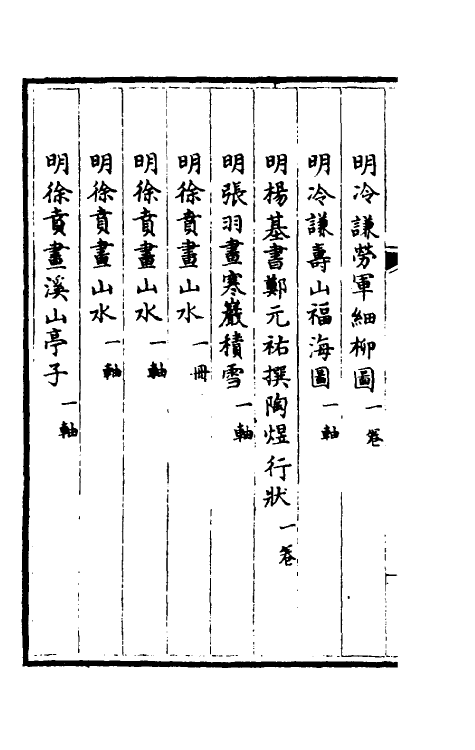 明冷謙勞軍細柳圖一卷
明冷謙壽山福海圖一軸
明楊基書鄭元祐撰陶煜行狀一卷
明張羽畫寒巖積雪一軸
明徐賁畫山水一冊
明徐賁畫山水一軸
明徐賁畫山水一軸
明徐賁畫溪山亭子一軸